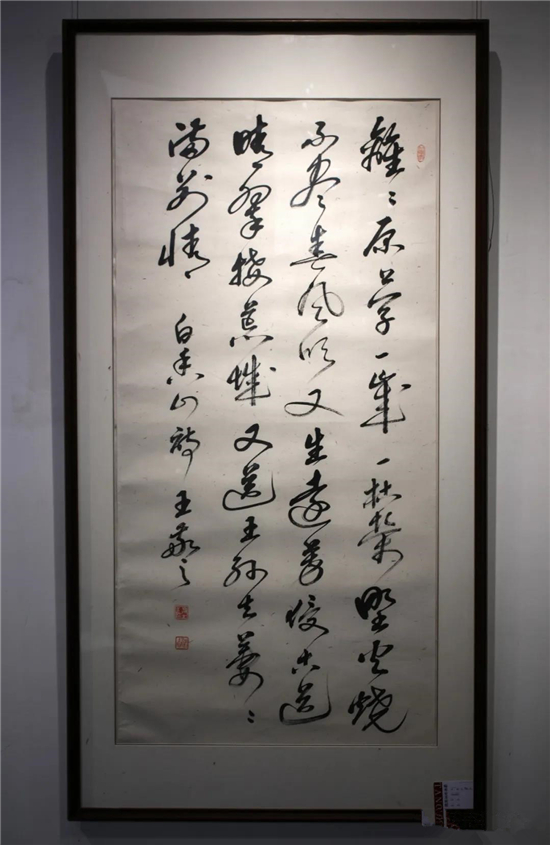 離〻原上草一歲一枯榮野火燒
不盡春風吹又生遠芳侵古道
晴翠接荒城又送王孫去萋〻
滿別情 白香山詩 王敬之